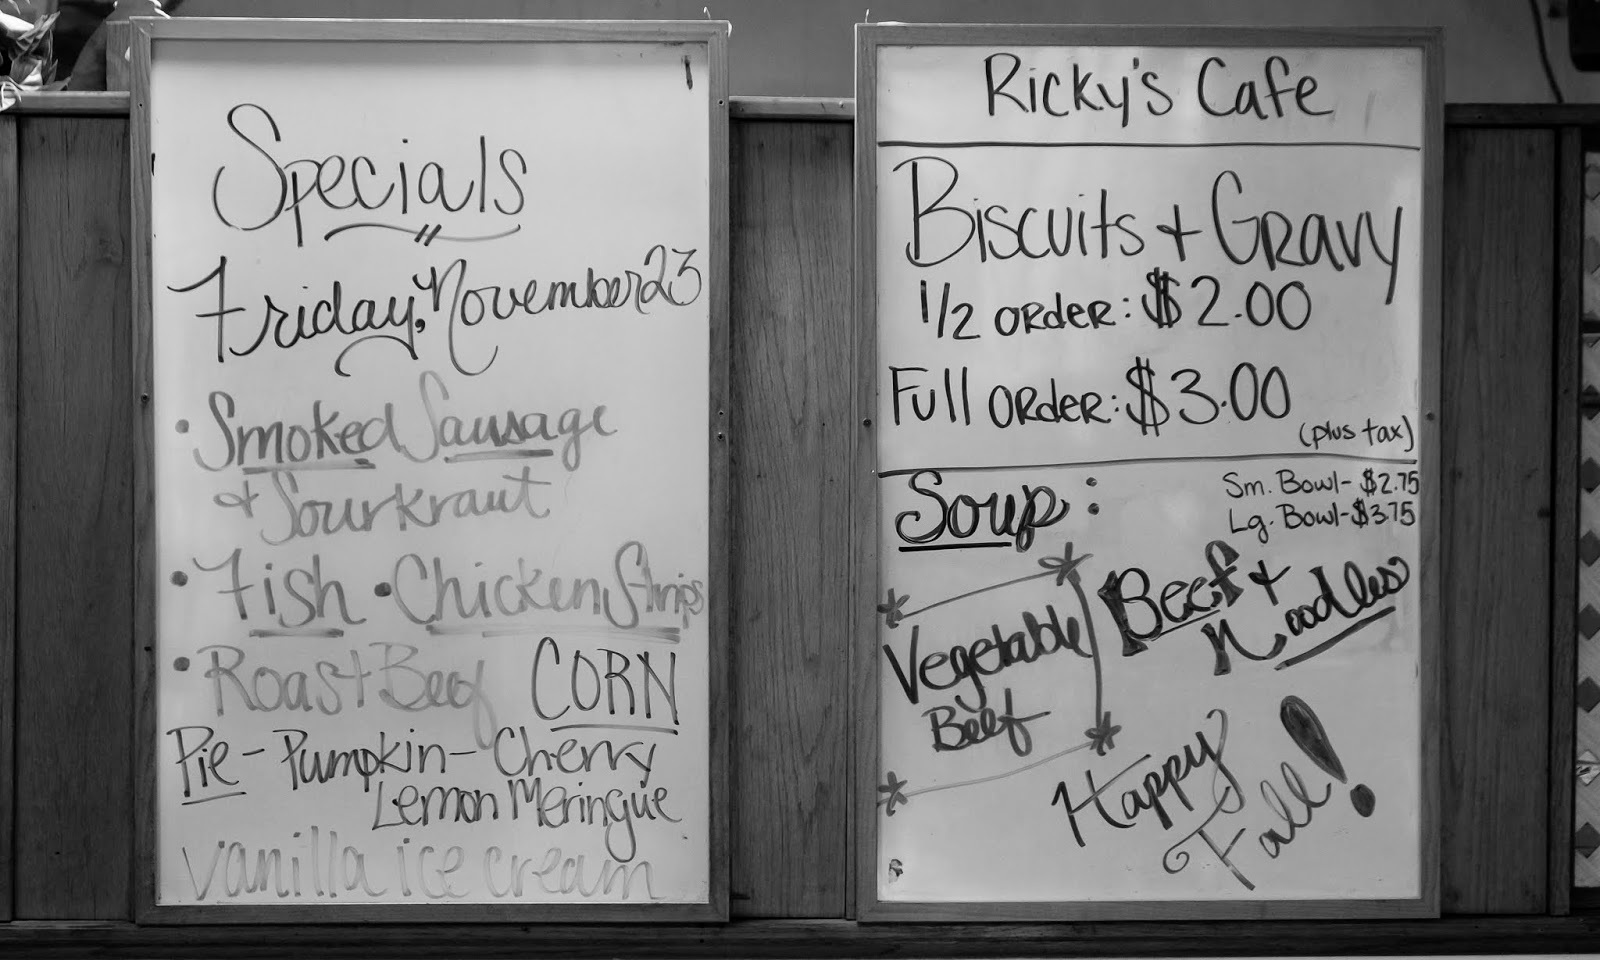 Specials
Friday, November 23
• Smoked Sausage
+ Sourkraut
• Fish • Chicken Strips
• Roast Beef CORN
Pie - Pumpkin - Cherry
Lemon Meringue
vanilla ice cream
Ricky's Cafe
Biscuits + Gravy
1/2 order: $2.00
Full order: $3.00
(plus tax)
Soup:
Sm. Bowl - $2.75
Lg. Bowl - $3.75
Vegetable
Beef
Beef +
Noodles
Happy
Fall!